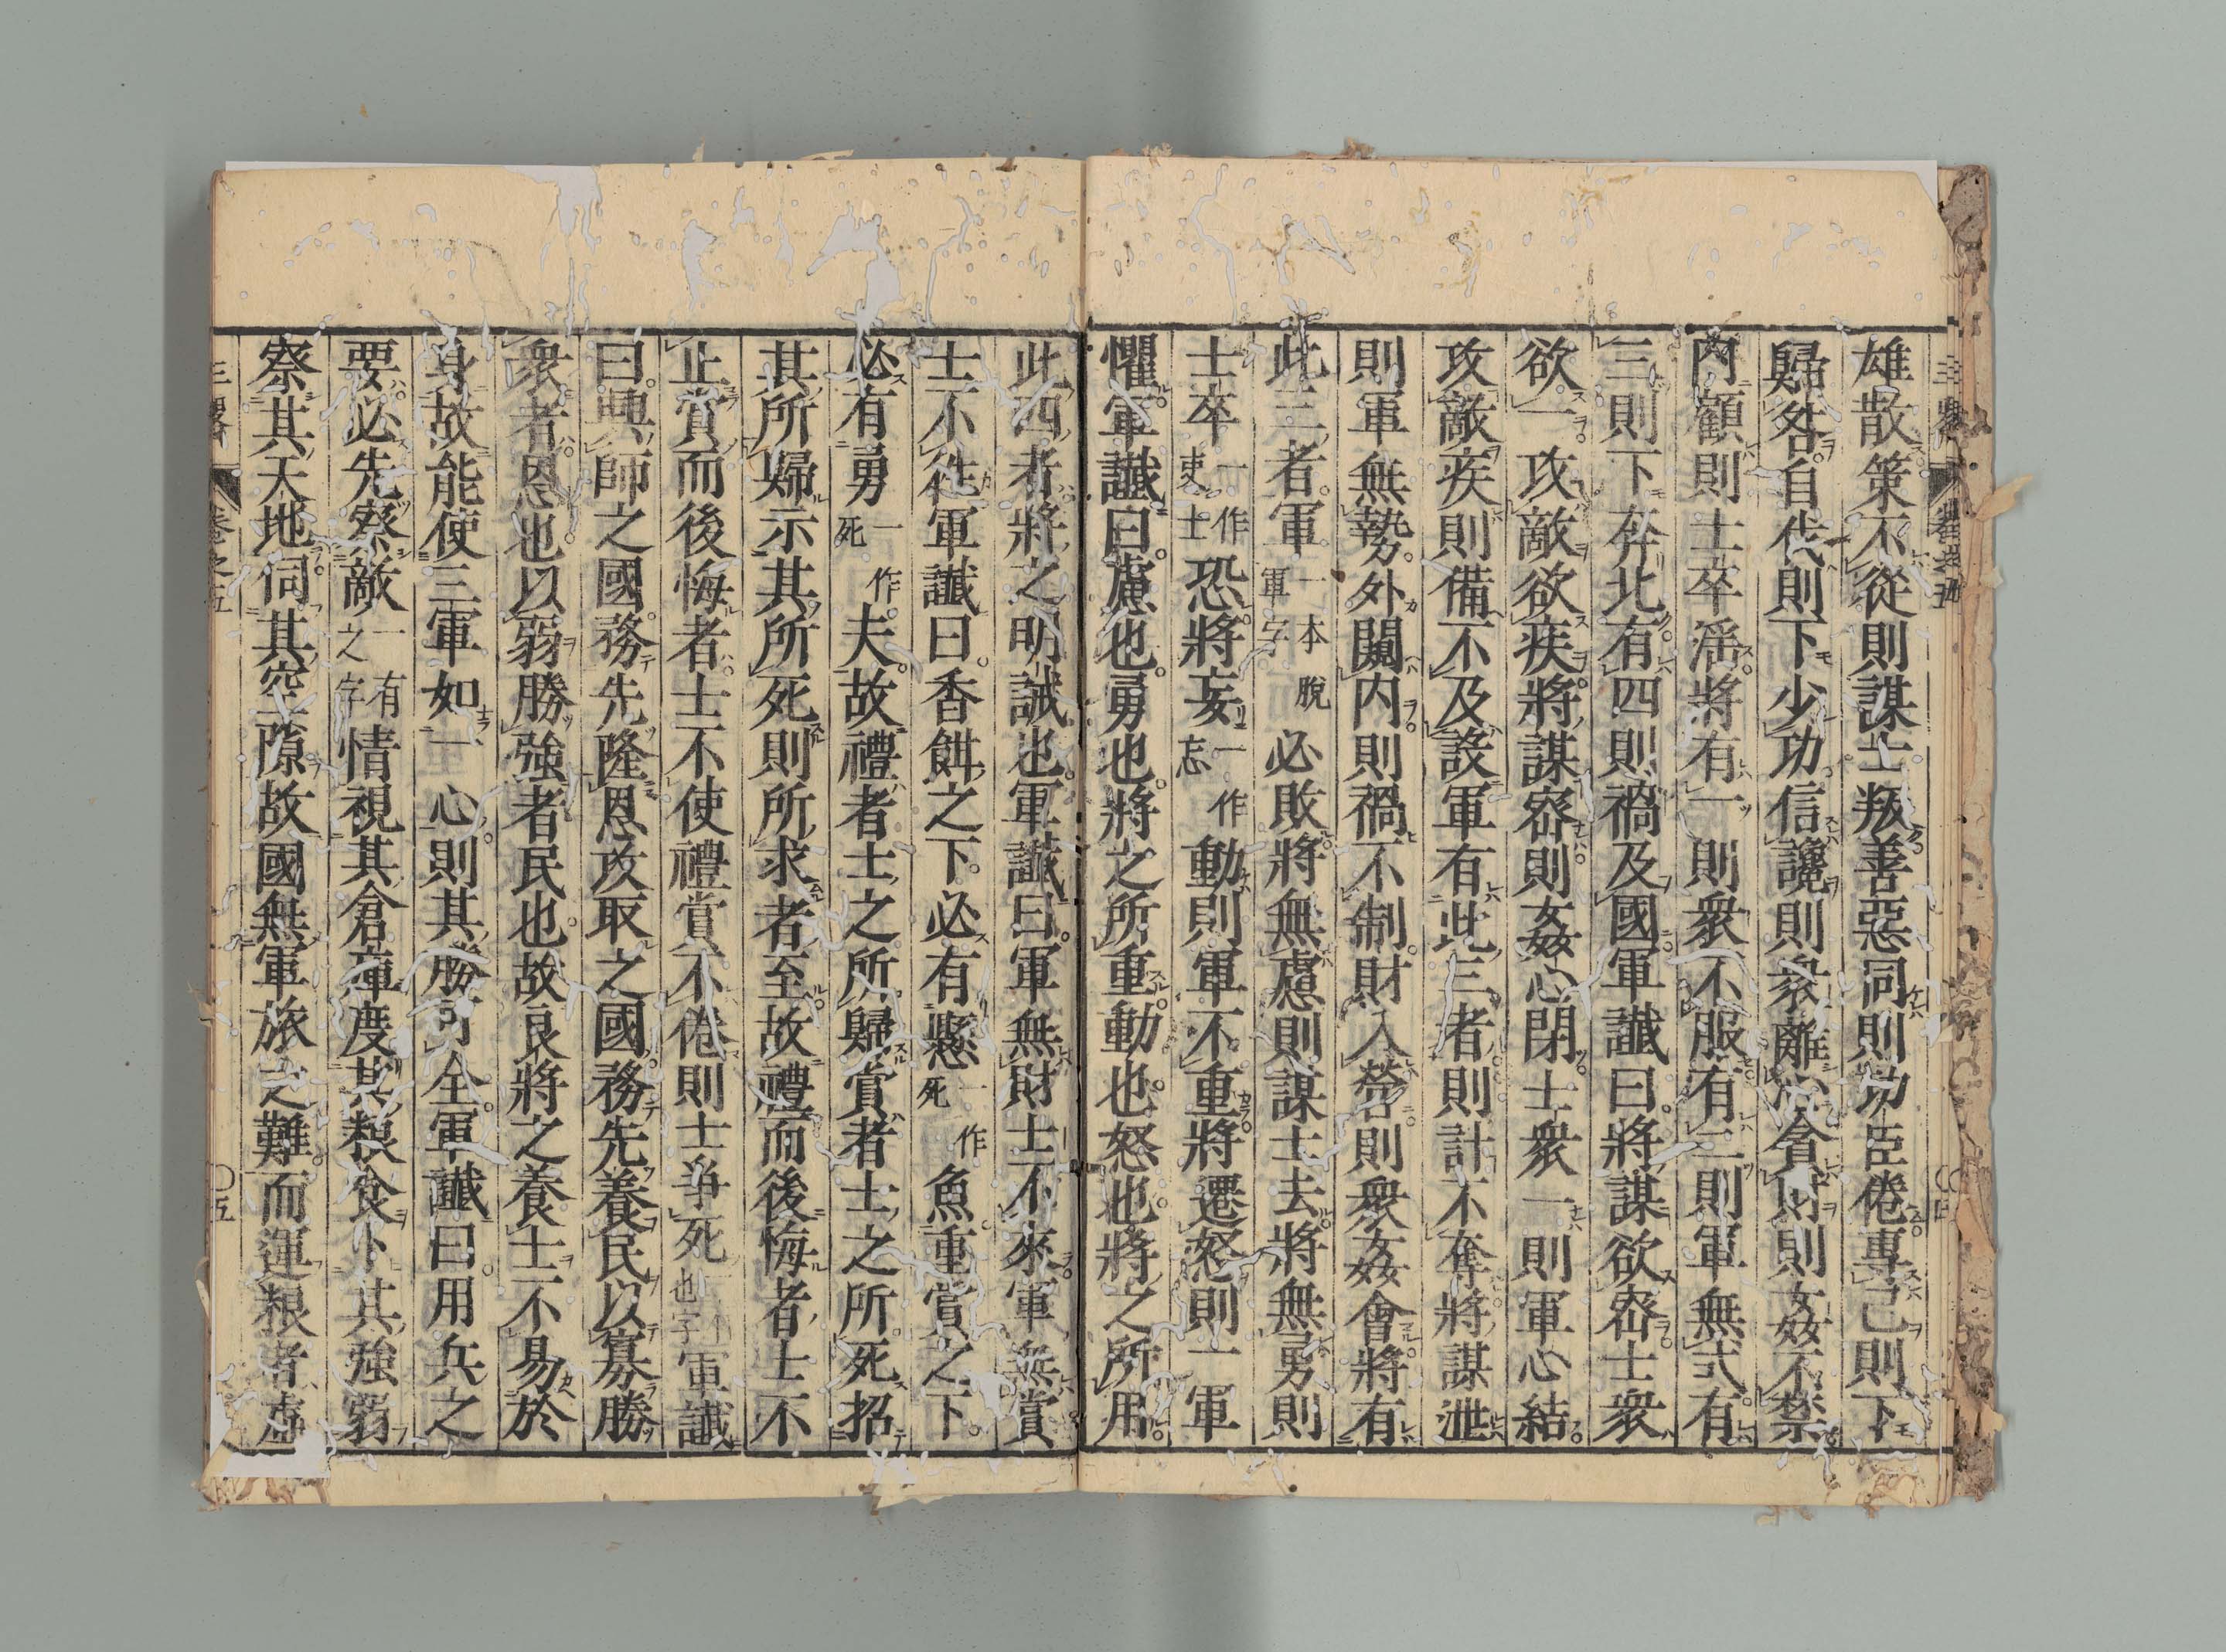 雄散策不從則謀士叛善惡同則功臣倦專己則下
歸咎自伐則下少功信讒則衆離心貪財則姦不禁
內顧則士卒淫將有一則衆不服有二則軍無式有
三則下奔北有四則禍及國軍讖曰將謀欲密士衆
欲一攻敵欲疾將謀密則姦心閉士衆一則軍心結
攻敵疾則備不及設軍有此三者則計不奪將謀泄
則軍無勢外闚內則禍不制財入營則衆姦會將有
此三者軍一本脫軍字必敗將無慮則謀士去將無勇則
士卒一作吏士恐將妄一作忘動則軍不重將遷怒則一軍
懼軍讖曰慮也勇也將之所重動也怒也將之所用
此四者將之明誡也軍讖曰軍無財士不來軍無賞
士不往軍讖曰香餌之下必有懸一作死魚重賞之下
必有勇一作死夫故禮者士之所歸賞者士之所死招
其所歸示其所死則所求者至故禮而後悔者士不
止賞而後悔者士不使禮賞不倦則士爭死軍讖
曰興師之國務先隆恩攻取之國務先養民以寡勝
衆者恩也以弱勝強者民也故良將之養士不易於
身故能使三軍如一心則其勝可全軍讖曰用兵之
要必先察敵一有之字情視其倉庫度其粮食卜其強弱
察其天地伺其空隙故國無軍旅之難而運粮者虛
三略 卷之五 〇五